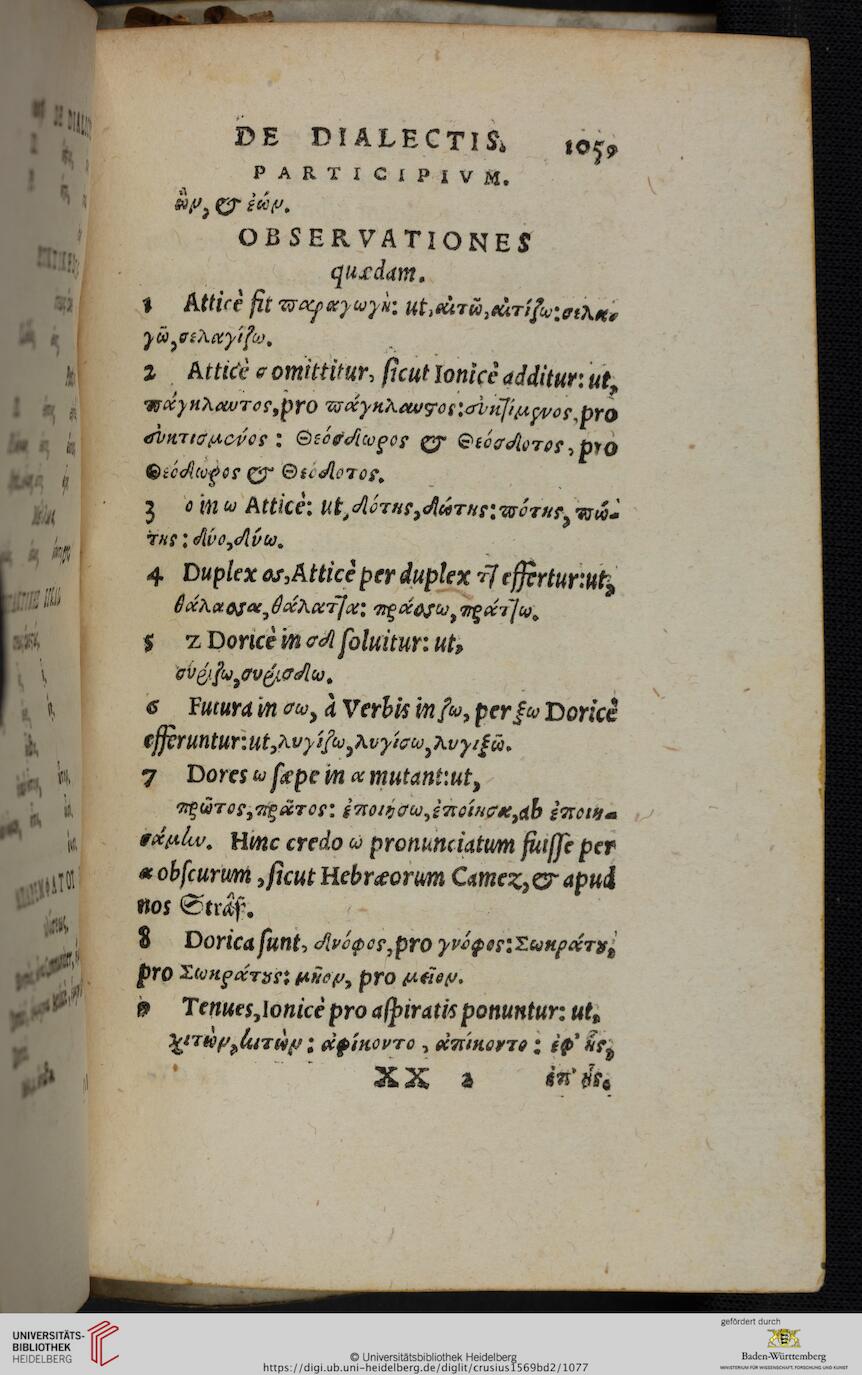 DE DIALECTIS. 1059
PARTICIPIVM.
ὢν, & ἐών.
OBSERVATIONES
quædam.
1 Atticè fit παραγωγὴ: ut, αἰτῶ, αἰτίζω: σελα-
γῶ, σελαγίζω.
2 Atticè σ omittitur, ſicut Ionicè additur: ut,
πάγκλαυτος, pro πάγκλαυστος: ἐϋκτίμενος, pro
ἐϋκτισμένος: Θεόσδωρος & Θεόσδοτος, pro
Θεόδωρος & Θεόδοτος.
3 ο in ω Atticè: ut, δότης, δώτης: πότης, πώ-
της: δύο, δύω.
4 Duplex σσ, Atticè per duplex ττ effertur: ut,
θάλασσα, θάλαττα: πράσσω, πράττω.
5 Z Doricè in σδ ſoluitur: ut,
συρίζω, συρίσδω.
6 Futura in σω, à Verbis in ζω, per ξω Doricè
efferuntur: ut, λυγίζω, λυγίσω, λυγιξῶ.
7 Dores ω ſæpe in α mutant: ut,
πρῶτος, πρᾶτος: ἐποιήσω, ἐποίησα, ab ἐποιη-
σάμην. Hinc credo ω pronunciatum fuiſſe per
α obſcurum, ſicut Hebræorum Camez, & apud
nos Strâſ.
8 Dorica ſunt, δνόφος, pro γνόφος: Σωκράτευς,
pro Σωκράτους: μῆον, pro μεῖον.
9 Tenues, Ionicè pro aſpiratis ponuntur: ut,
χιτὼν, κιτὼν: ἀφίκοντο, ἀπίκοντο: ἐφ' ἧς,
XX 2 ἐπ' ἧς.
UNIVERSITÄTS-
BIBLIOTHEK
HEIDELBERG
© Universitätsbibliothek Heidelberg
https://digi.ub.uni-heidelberg.de/diglit/crusius1569bd2/1077
gefördert durch
Baden-Württemberg
MINISTERIUM FÜR WISSENSCHAFT, FORSCHUNG UND KUNST